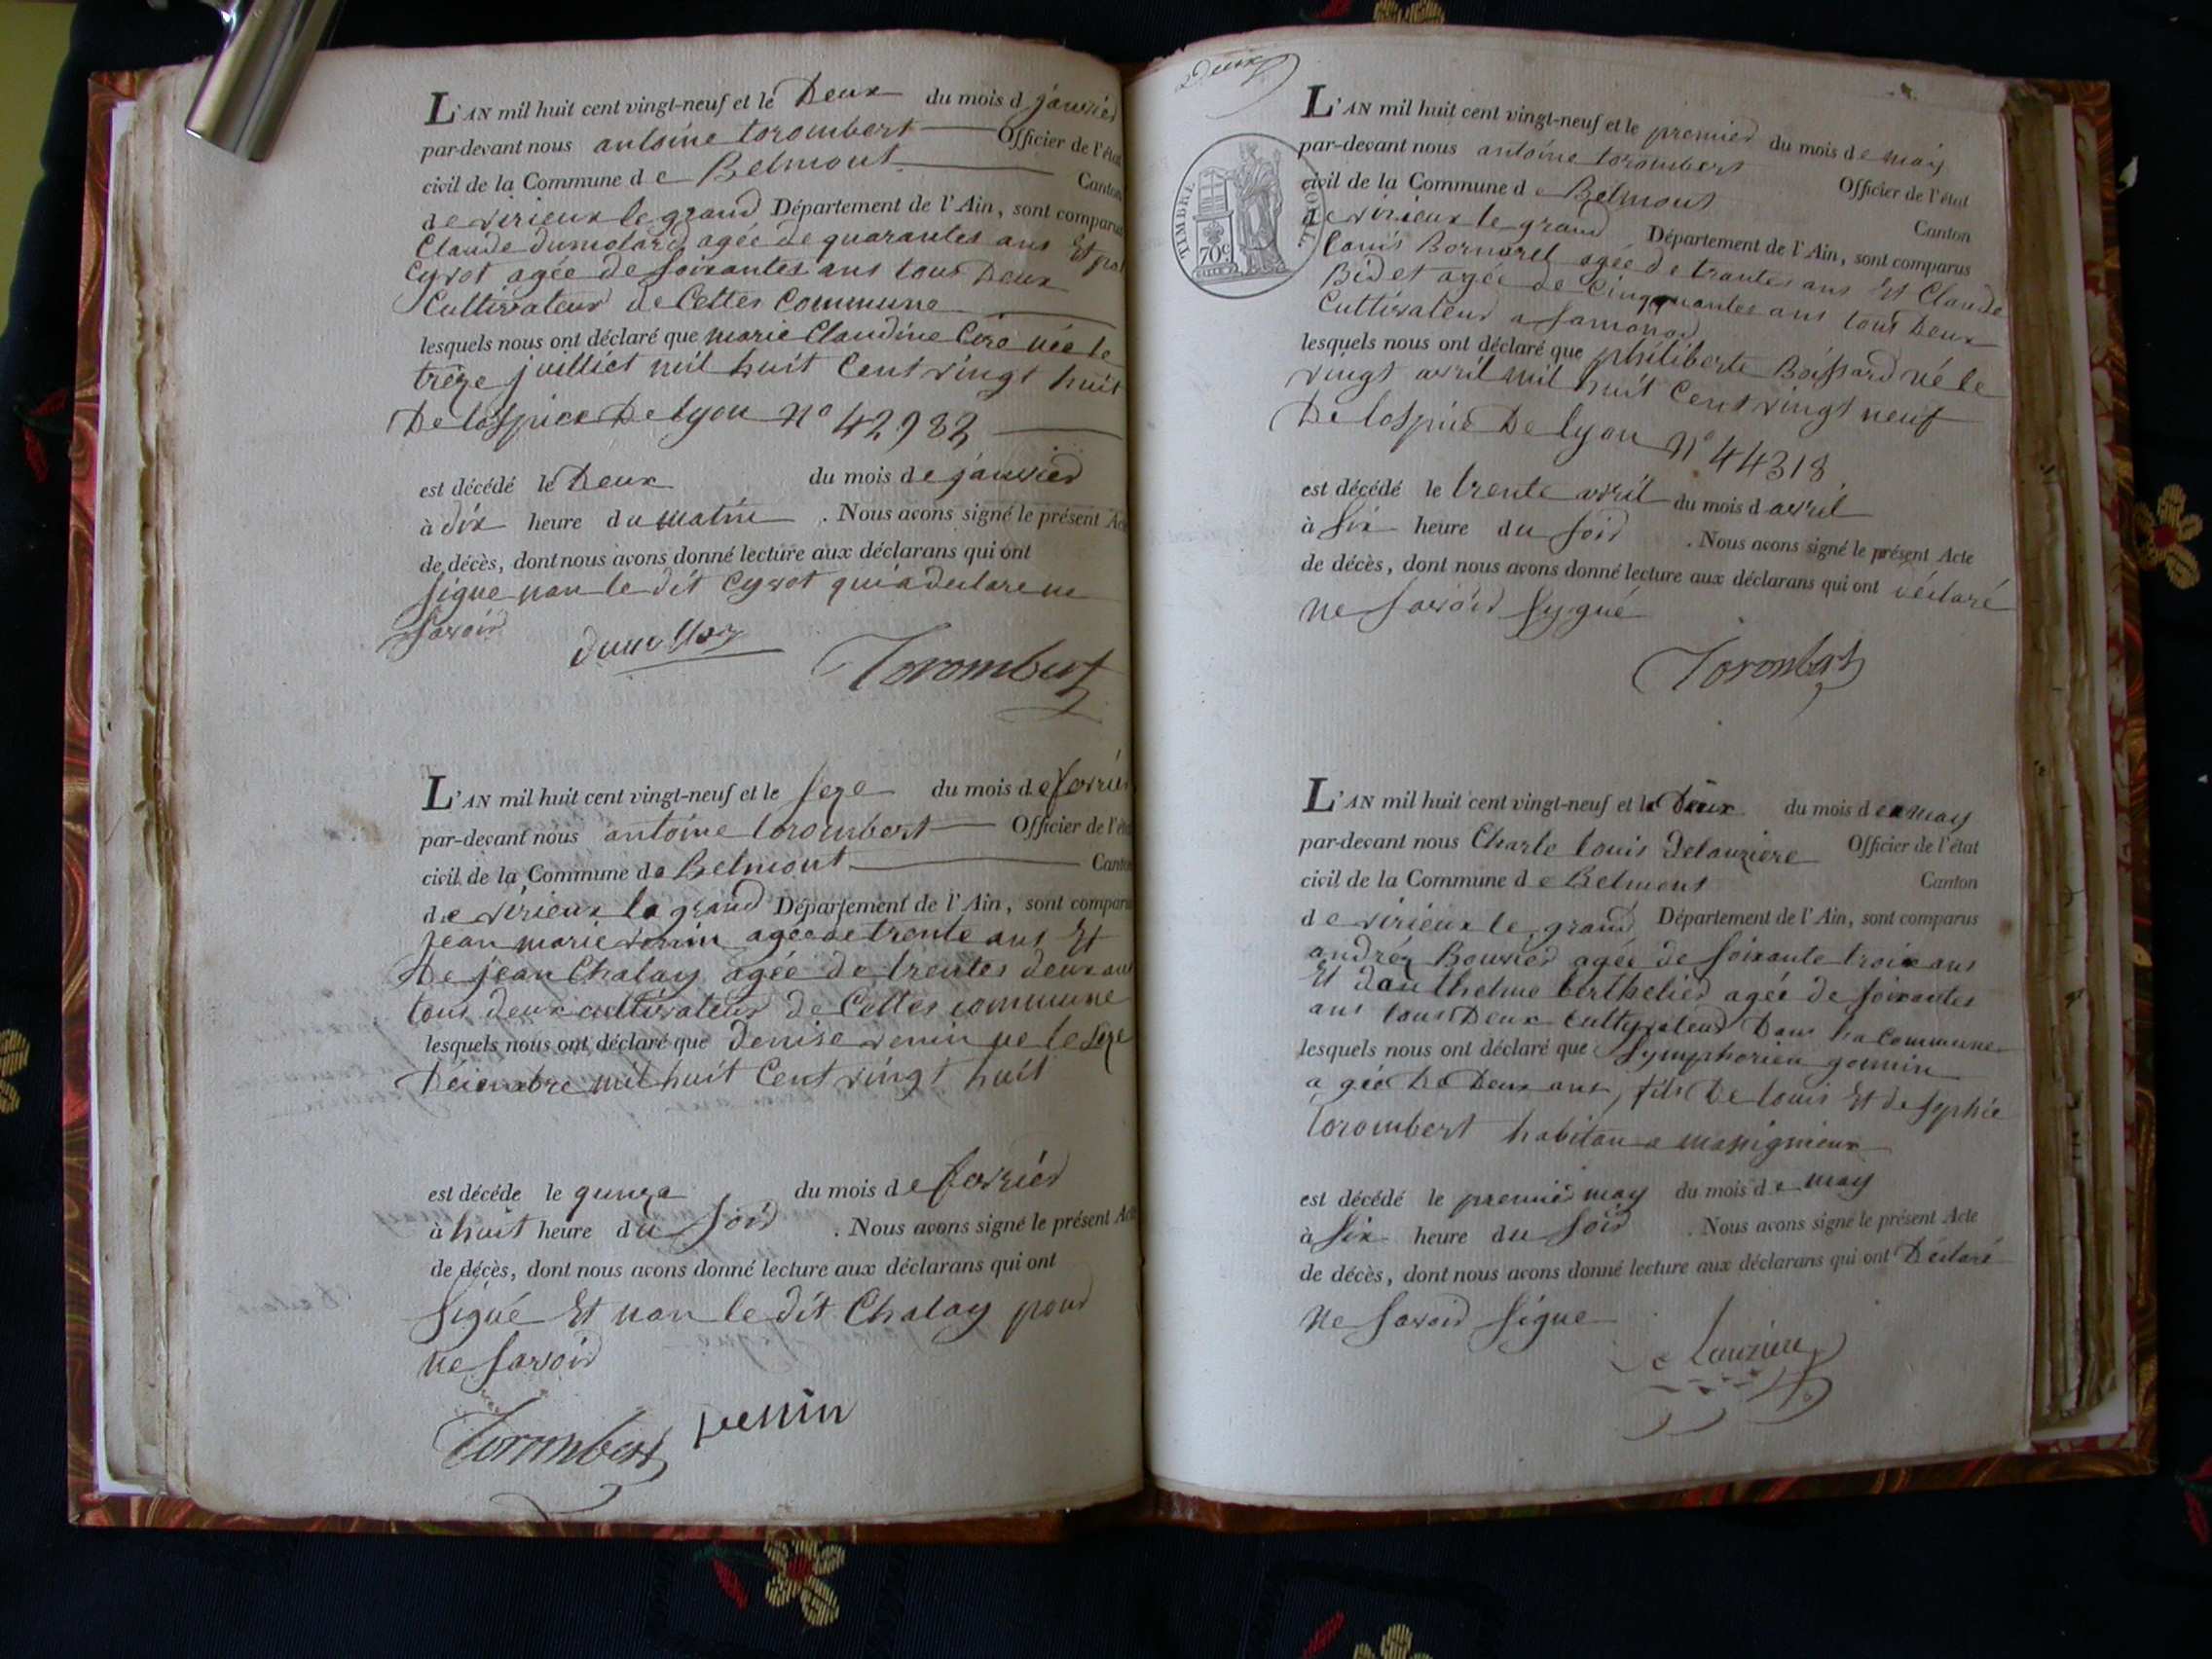 L'AN mil huit cent vingt-neuf et le Deux du mois d janvier
par-devant nous antoine torombert Officier de l'état
civil de la Commune de Belmont Canton
de virieux le grand Département de l'Ain, sont comparus
Claude dumolard agée de quarantes ans Et
Cyvot agée de soixantes ans tous Deux
Cultivateur de Cettes Commune
lesquels nous ont déclaré que marie Claudine Cire née le
treze juilliet mil huit Cent vingt huit
De lospice De lyon n° 42982
est décédé le Deux du mois de janvier
à dix heure du matin . Nous avons signé le présent Acte
de décès, dont nous avons donné lecture aux déclarans qui ont
signe non le dit Cyvot qui a declare ne
savoir
Torombert
L'AN mil huit cent vingt-neuf et le seze du mois de fevrier
par-devant nous antoine torombert Officier de l'état
civil de la Commune de Belmont Canton
de virieux le grand Département de l'Ain, sont comparus
jean marie venin agée de trente ans Et
De jean Chalay agée de trentes deux ans
tous deux cultivateur de Cettes commune
lesquels nous ont déclaré que denise venin ne le seze
Décembre mil huit Cent vingt huit
est décédé le qunze du mois de fevrier
à huit heure du soir . Nous avons signé le présent Acte
de décès, dont nous avons donné lecture aux déclarans qui ont
signé Et non le dit Chalay pour
ne savoir
Torombert venin
Deux
TIMBRE ROYAL
70c
L'AN mil huit cent vingt-neuf et le premier du mois de may
par-devant nous antoine torombert Officier de l'état
civil de la Commune de Belmont Canton
de virieux le grand Département de l'Ain, sont comparus
louis Bornarel agée de trantes ans Et Claude
Bidet agée de Cinqquantes ans tous Deux
Cultivateur a samonod
lesquels nous ont déclaré que philiberte Boissard né le
vingt avril mil huit Cent vingt neuf
De lospice De lyon n° 44318
est décédé le trente avril du mois d avril
à six heure du soir . Nous avons signé le présent Acte
de décès, dont nous avons donné lecture aux déclarans qui ont déclaré
ne savoir sygné
Torombert
L'AN mil huit cent vingt-neuf et le Deux du mois de may
par-devant nous Charle louis Delauziere Officier de l'état
civil de la Commune de Belmont Canton
de virieux le grand Département de l'Ain, sont comparus
andréz Bouvier agée de soixante troix ans
Et danthelme berthelier agée de soixantes
ans tous Deux Cultyvateur Dans la Commune
lesquels nous ont déclaré que symphorien gonnin
agée De Deux ans, fils De louis Et de sophie
torombert habitan a massignieux
est décédé le premier may du mois de may
à six heure du soir . Nous avons signé le présent Acte
de décès, dont nous avons donné lecture aux déclarans qui ont Déclaré
ne savoir signe